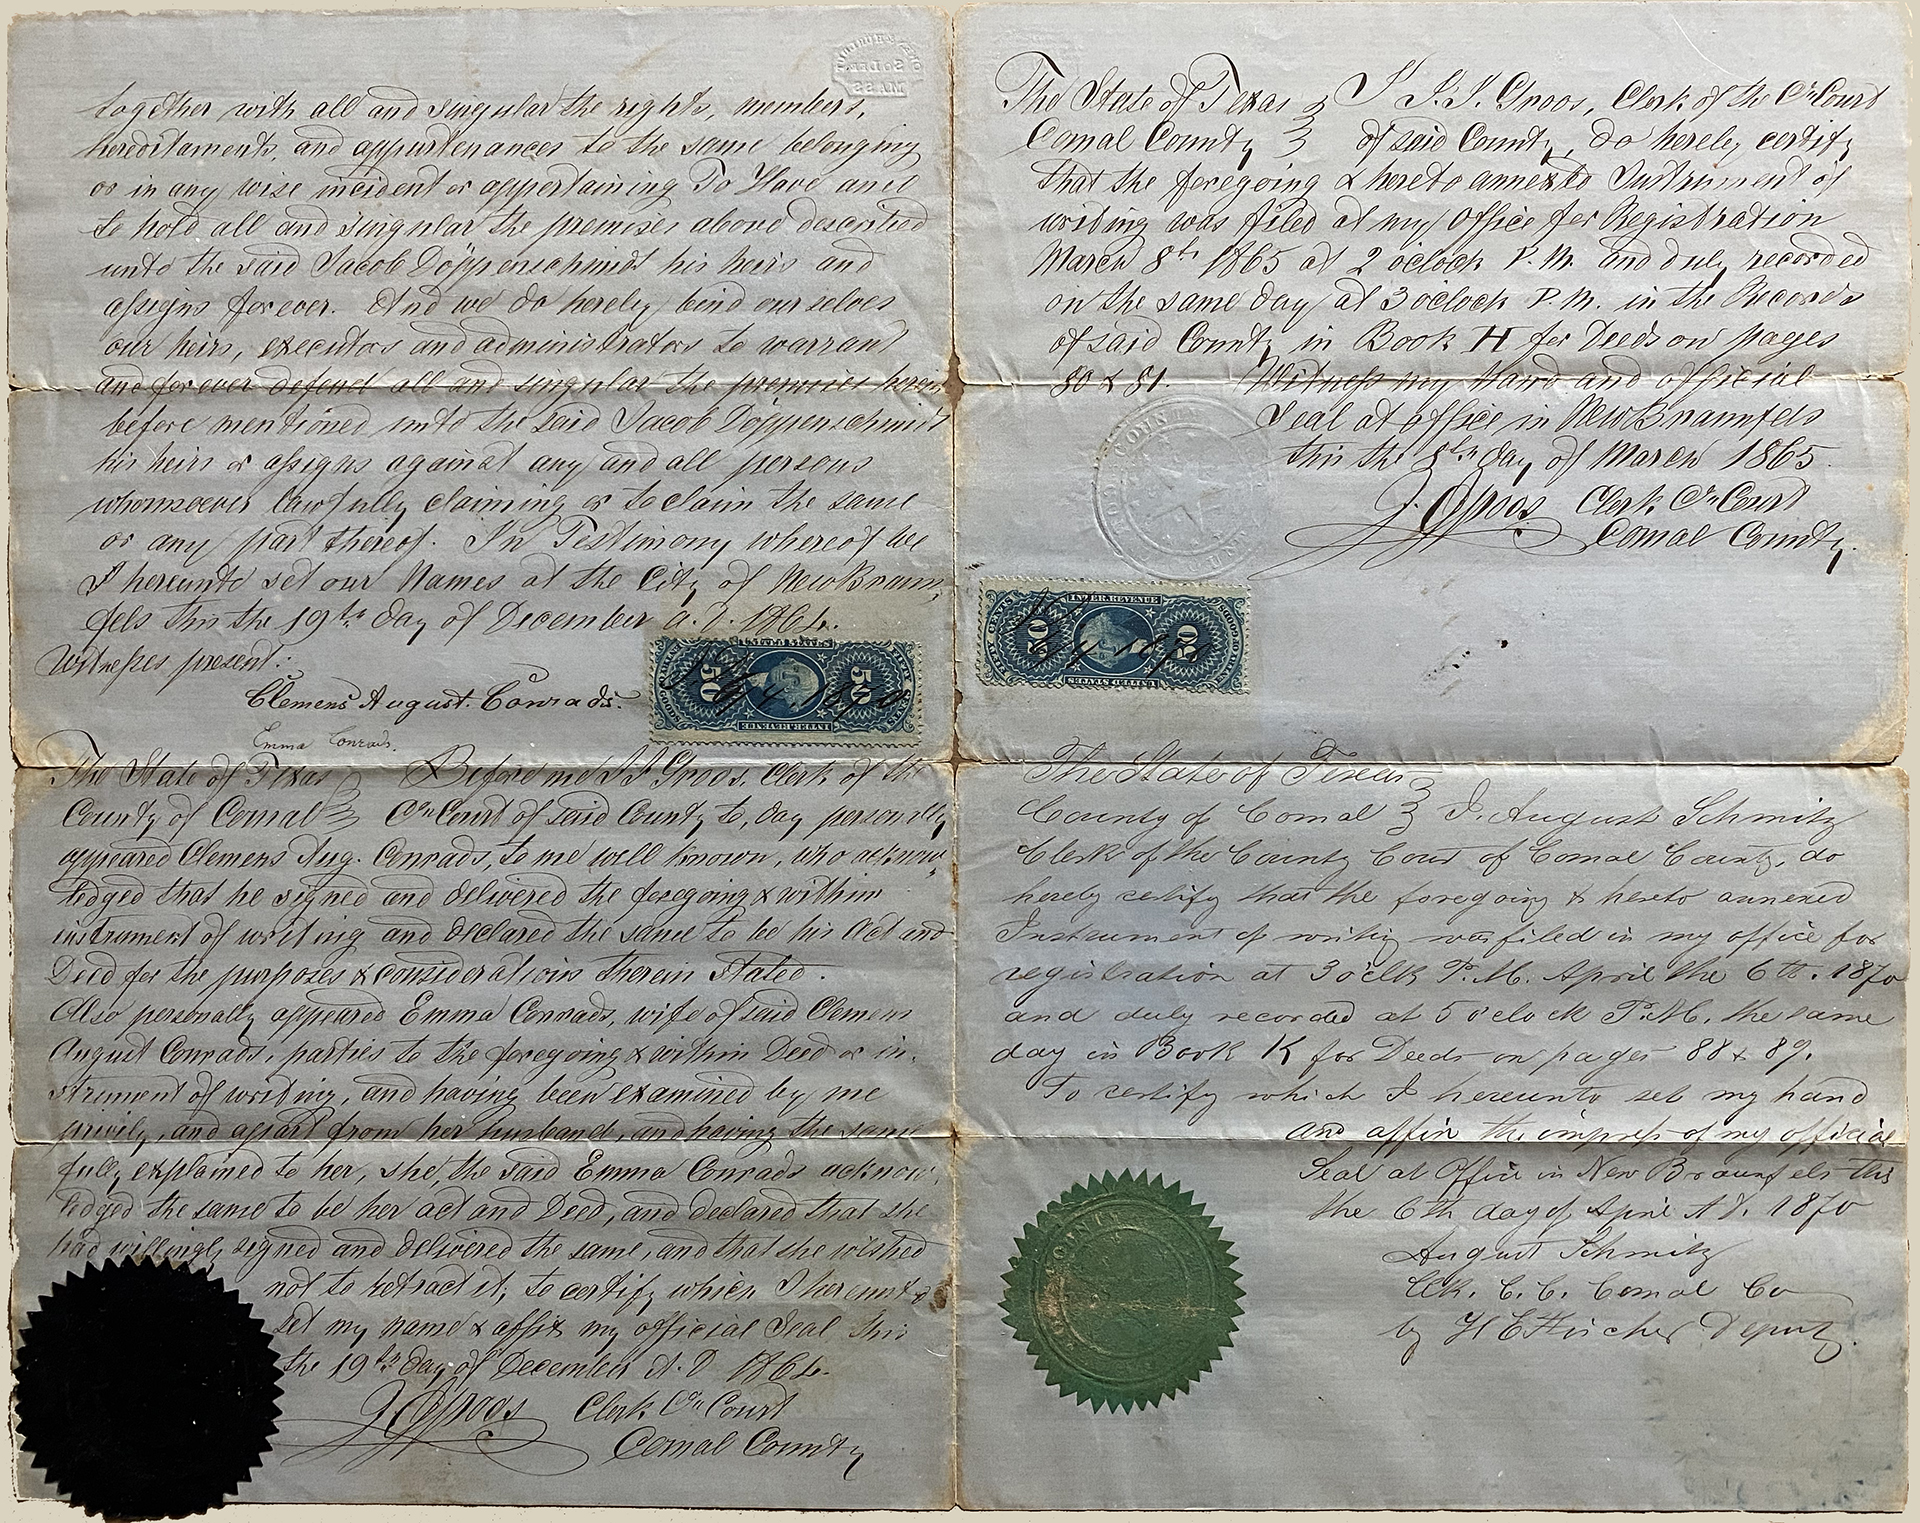 together with all and singular the rights, members,
hereditaments, and appurtenances to the same belonging
or in any wise incident or appertaining To Have and
to hold all and singular the premises above described
unto the said Jacob Döppenschmidt his heirs and
assigns forever. And we do hereby bind ourselves
our heirs, executors and administrators to warrant
and forever defend all and singular the premises herein
before mentioned unto the said Jacob Döppenschmidt
his heirs or assigns against any and all persons
whomsoever lawfully claiming or to claim the same
or any part thereof. In Testimony whereof we
hereunto set our Names at the City of New Braun,
fels this the 19th day of December A.D. 1864.
Witnesses present:
Clemens August Conrads.
Emma Conrads.
The State of Texas
County of Comal
Before me J J Groos, Clerk of the
Cy Court of said County to, day personally
appeared Clemens Aug. Conrads, to me well known, who acknow,
ledged that he signed and delivered the foregoing & within
instrument of writing and declared the same to be his Act and
Deed for the purposes & considerations therein stated.
Also personally appeared Emma Conrads, wife of said Clemens
August Conrads, parties to the foregoing & within Deed or in,
strument of writing, and having been examined by me
privily, and apart from her husband, and having the same
fully explained to her, she, the said Emma Conrads acknow,
ledged the same to be her act and Deed, and declared that she
had willingly signed and delivered the same, and that she wished
not to retract it; to certify which I hereunto
set my name & affix my official Seal this
the 19th day of December A.D 1864.
J. Groos Clerk Cy Court
Comal County
FIFTY CENTS
50
UNITED STATES
INTER. REVENUE
1870
The State of Texas
Comal County
I J.J. Groos, Clerk of the Cy Court
of said County, do hereby certify
that the foregoing & hereto annexed Instrument of
writing was filed at my Office for Registration
March 8th 1865 at 2 oclock P.M. and duly recorded
on the same day at 3 oclock P.M. in the Records
of said County in Book H for Deeds on pages
80 & 81. Witness my Hand and official
Seal at office in New Braunfels
this the 8th day of March 1865.
J. Groos Clerk Cy Court
Comal County.
FIFTY CENTS
50
INTER. REVENUE
UNITED STATES
1870
The State of Texas
County of Comal
I, August Schmitz
Clerk of the County Court of Comal County, do
hereby certify that the foregoing & hereto annexed
Instrument of writing was filed in my office for
registration at 3 o'clk P.M. April the 6th. 1870
and duly recorded at 5 o'clock P.M. the same
day in Book K for Deeds on pages 88 & 89.
To certify which I hereunto set my hand
and affix the impress of my official
Seal at Office in New Braunfels this
the 6th day of April A.D. 1870
August Schmitz
Clk. C. C. Comal Co
by H E Fischer Deputy.